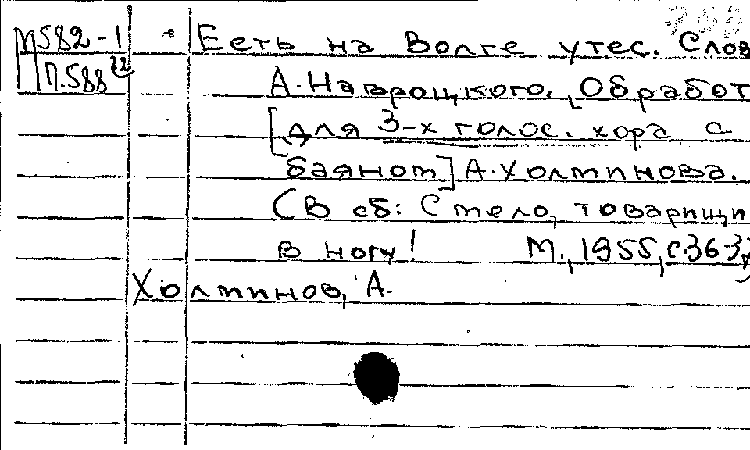 П582-1 Есть на Волге утес. Слов
П.588 А. Навроцкого, Обработ
[для 3-х голос. хора с
баяном] А. Холминова.
(В сб: Смело, товарищи
в ногу! М., 1955, с.36-3
Холминов, А.